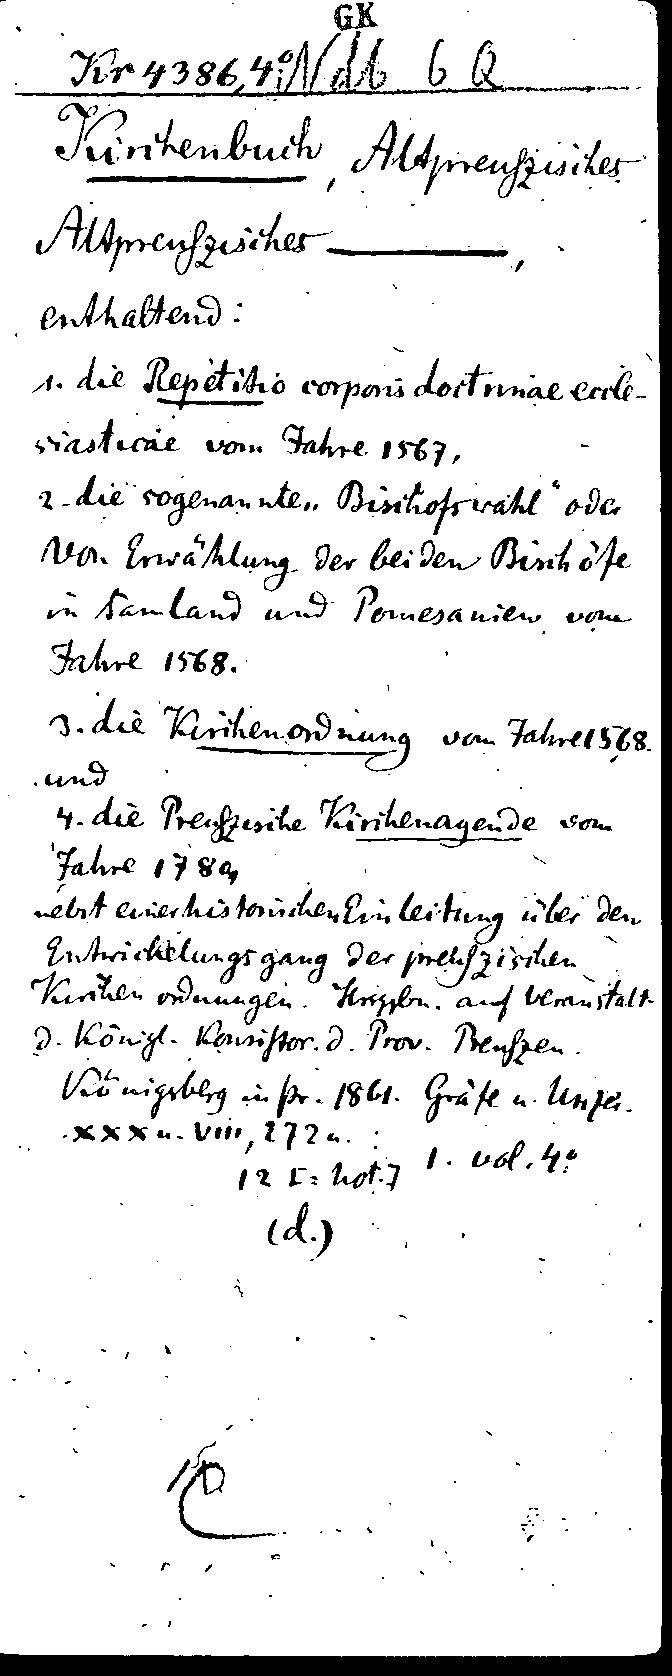 GK
Kr 4386, 4° Ndb 6 Q
Kirchenbuch, Altpreuszisches
Altpreuszisches ———,
enthaltend:
1. die Repetitio corporis doctrinae eccle-
siasticae vom Jahre 1567,
2. die sogenannte „Bischofswahl" oder
Von Erwählung der beiden Bischöfe
in Samland und Pomesanien vom
Jahre 1568.
3. die Kirchenordnung vom Jahre 1568.
und
4. die Preuszische Kirchenagende vom
Jahre 1789,
nebst einer historischen Einleitung über den
Entwickelungsgang der preuszischen
Kirchenordnungen. Hrsgbn. auf Veranstalt.
d. Königl. Konsistor. d. Prov. Preuszen.
Königsberg in Pr. 1861. Gräfe u. Unzer.
XXX u. VIII, 272 u.
12 [= Not.] 1. vol. 4°
(d.)